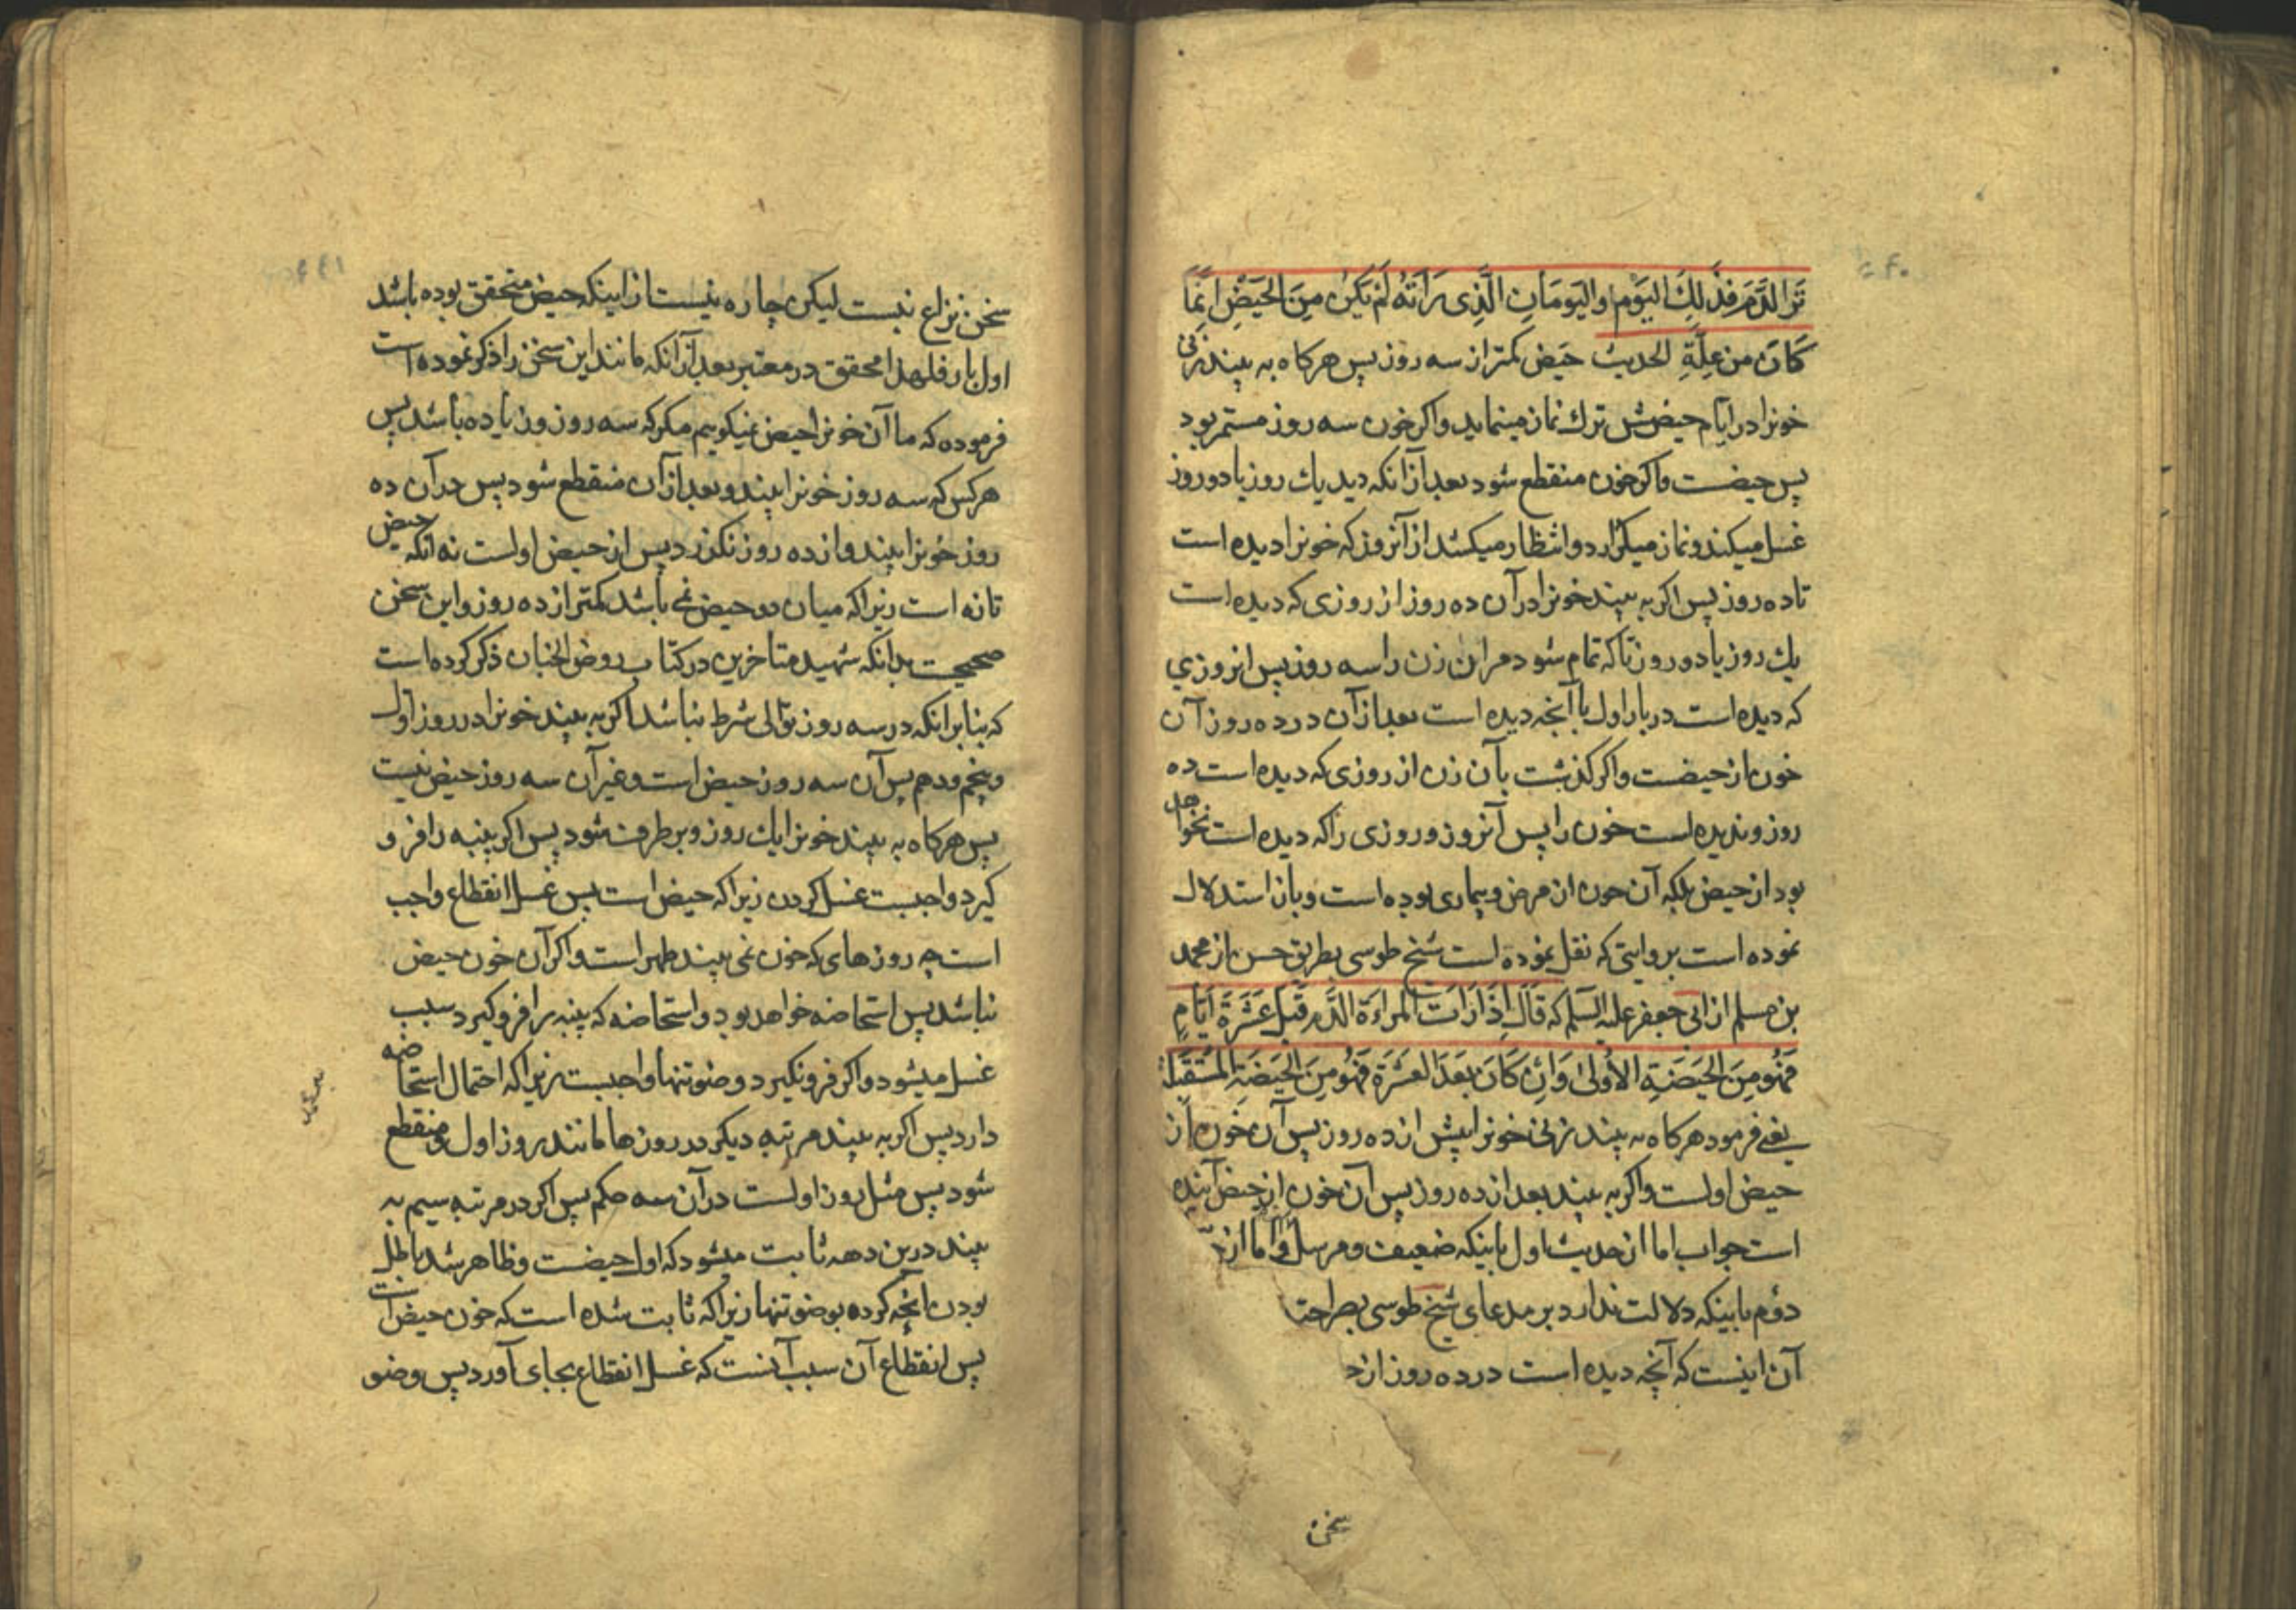 تَرَ الدَّمَ فذلِكَ اليَوم واليَومَانِ الَّذِى رَأَتهُ لَمْ يَكُن مِنَ الحَيضِ اِنَّمَا
كَانَ من عِلَّةِ الحديث حَيض كمتر از سه روز پس هركاه به بيند زنى
خونرا در ايّام حيضش ترك نماز مينمايد و اكر خون سه روز مستمر بود
پس حيضست و اكر خون منقطع شود بعد از انكه ديد يك روز يا دو روز
غسل ميكند و نماز ميكزارد و انتظار ميكشد از آنروز كه خونرا ديده است
تا ده روز پس اكر به بيند خونرا در آن ده روز از روزى كه ديده است
يك روز يا دو روز تا كه تمام شود مر ان زن را سه روز پس انروزي
كه ديده است در بار اول با آنچه ديده است بعد از آن در ده روز آن
خون از حيضست و اكر كذشت بآن زن از روزى كه ديده است ده
روز و نديده است خون را پس آنروز و روزى را كه ديده است نخواهد
بود از حيض بلكه آن خون از مرض و بيمارى بوده است و بان استدلال
نموده است بروايتى كه نقل نموده است شيخ طوسى بطريق حسن از محمد
بن مسلم از ابى جعفر عليه السلم كه قَالَ اِذَا رَاَت المراءَة الدَّم قَبلَ عَشَرَة اَيّامٍ
فَهُوَ مِنَ الحَيضَةِ الاُولىٰ وَاِن كَانَ بَعدَ العَشَرَة فَهُوَ مِنَ الحَيضَةِ المُستَقبَلَة
يعنى فرمود هركاه به بيند زنى خونرا پيش از ده روز پس آن خون از
حيض اولست و اكر به بيند بعد از ده روز پس آن خون از حيض آينده
است جواب اما از حديث اول باينكه ضعيف و مرسل و اما از
دوّم باينكه دلالت ندارد بر مدعاى شيخ طوسى بصراحتا
آن اينست كه آنچه ديده است در ده روز از
سخن
سخن نزاع نيست ليكن چاره نيست از اينكه حيض متحقق بوده باشد
اول بار فلهذا محقق در معتبر بعد از آنكه مانند اين سخن را ذكر نموده است
فرموده كه ما آن خونرا حيض نميكوييم مكر كه سه روز و زياده باشد پس
هركس كه سه روز خونرا بيند و بعد از آن منقطع شود پس در آن ده
روز خونرا بيند و از ده روز نكزرد پس از حيض اولست نه آنكه حيض
تازه است زيرا كه ميان دو حيض نمى باشد كمتر از ده روز و اين سخن
صحيحست بدانكه شهيد متاخرين در كتاب روض الجنان ذكر كرده است
كه بنا بر انكه در سه روز توالى شرط نباشد اكر به بيند خونرا در روز اول
و پنجم و دهم پس آن سه روز حيض است و غير آن سه روز حيض نيست
پس هركاه به بيند خونرا يك روز و برطرف شود پس اكر پنبه را فرو
كيرد واجبست غسل كردن زيرا كه حيض است پس غسل انقطاع واجب
است چه روزهاى كه خون نمى بيند طهر است و اكر آن خون حيض
نباشد پس استحاضه خواهد بود و استحاضه كه پنبه را فرو كيرد سبب
غسل ميشود و اكر فرو نكيرد وضو تنها واجبست زيرا كه احتمال استحاضه
دارد پس اكر به بيند مرتبه ديكر در روزها مانند روز اول و منقطع
شود پس مثل روز اولست در آن سه حكم پس اكر در مرتبه سيم به
بيند درين دهه ثابت ميشود كه اول حيضست و ظاهر شد باطل
بودن آنچه كرده بوضو تنها زيرا كه ثابت شده است كه خون حيض است
پس انقطاع آن سبب آنست كه غسل انقطاع بجاى آورد پس وضو